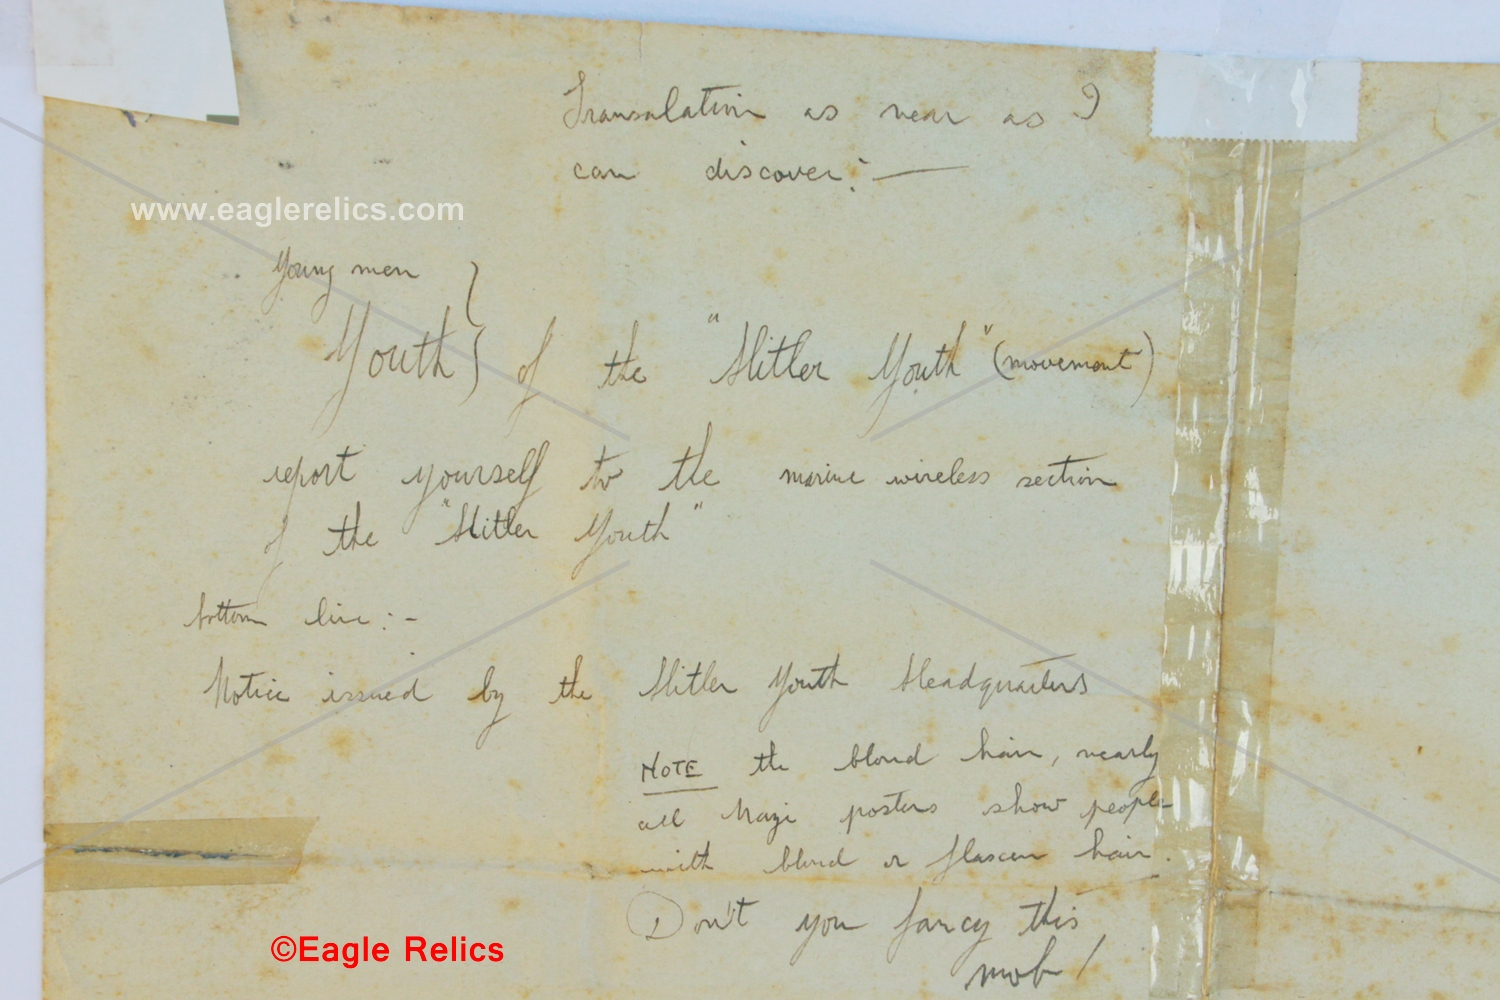 Transalation as near as I
can discover:—
www.eaglerelics.com
Young men
Youth } of the "Hitler Youth" (movement)
report yourself to the marine wireless section
of the "Hitler Youth"
bottom line:-
Notice issued by the Hitler Youth Headquarters
NOTE the blond hair, nearly
all Nazi posters show people
with blond or flaxen hair.
Don't you fancy this
mob!
©Eagle Relics